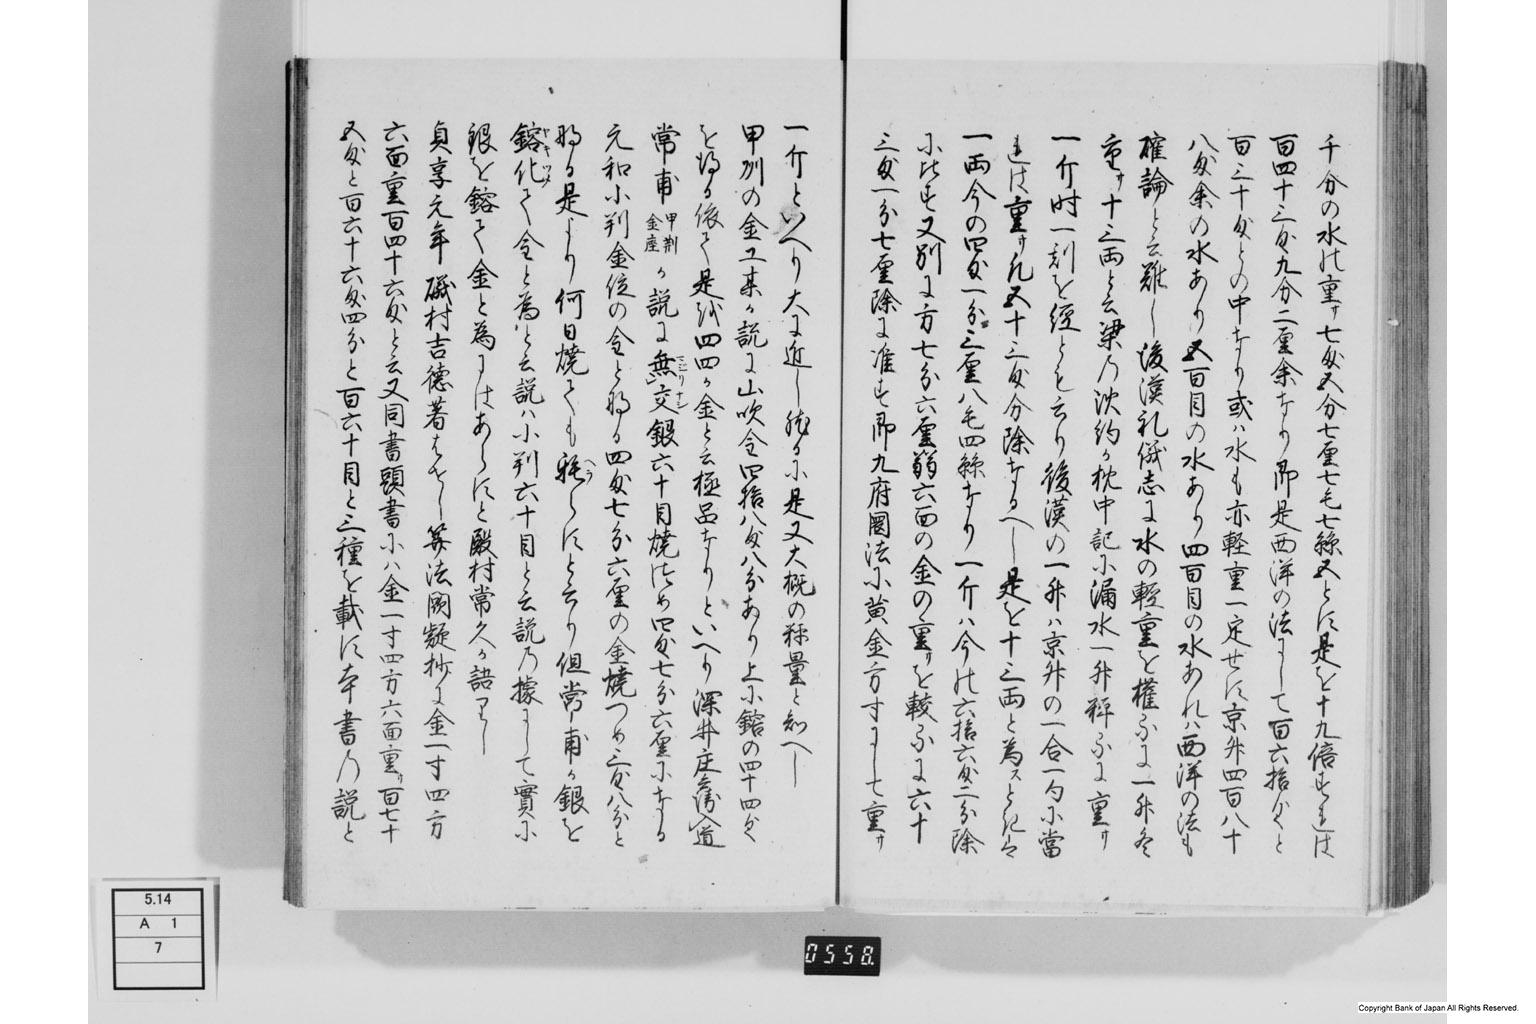 千分の水の重サ七匁五分七厘七毛七絲又とに是を十九倍すれは
百四十三匁九分二厘余なり即是西洋の法にして百六拾匁と
百三十匁との中なり或ハ水も亦軽重一定せす京舛四百八十
八匁余の水あり又百目の水あり四百目の水あれハ西洋の法も
確論と云難し後漢礼儀志に水の軽重を権るに一舛冬
重サ十三両と云梁乃沈約か枕中記に漏水一舛秤るに重サ
一斤時一刻を経とも云り後漢の一舛ハ京舛の一合一勺に當
れは重サ凡五十三匁分除なるへし是を十三両と為スときハ
一両今の四匁一分三厘八毛四絲なり一斤ハ今の六拾六匁二分除
に比す又別に方七分六厘弱六面の金の重サを較るに六十
三匁一分七厘除に准す即九府圜法に黄金方寸にして重サ
一斤といへり大に近し然るに是又大概の秤量と知へし
甲州の金工某か説に山吹金四拾八匁八分あり上に鎔の四十四匁
を得る依て是を四四の金と云極品なりといへり深井庄兵衛入道
常甫 甲州金座 か説に無交銀六十目焼つめ四匁七分六厘になる
元和小判金位の金と得る四匁七分六厘の金焼つめ三匁八分と
得る是より何日焼ても耗らすと云り但常甫か銀を
鎔化て金と為と云説ハ小判六十目と云説乃據にして實に
銀を鎔て金と為にはあらすと殿村常久か語りし
貞享元年磯村吉徳著はせし算法闕疑抄に金一寸四方
六面重百四十六匁と云又同書頭書にハ金一寸四方六面重サ百七十
五匁と百六十六匁四分と百六十目と三種を載す本書乃説と
5.14
A 1
7
0558.
Copyright Bank of Japan All Rights Reserved.